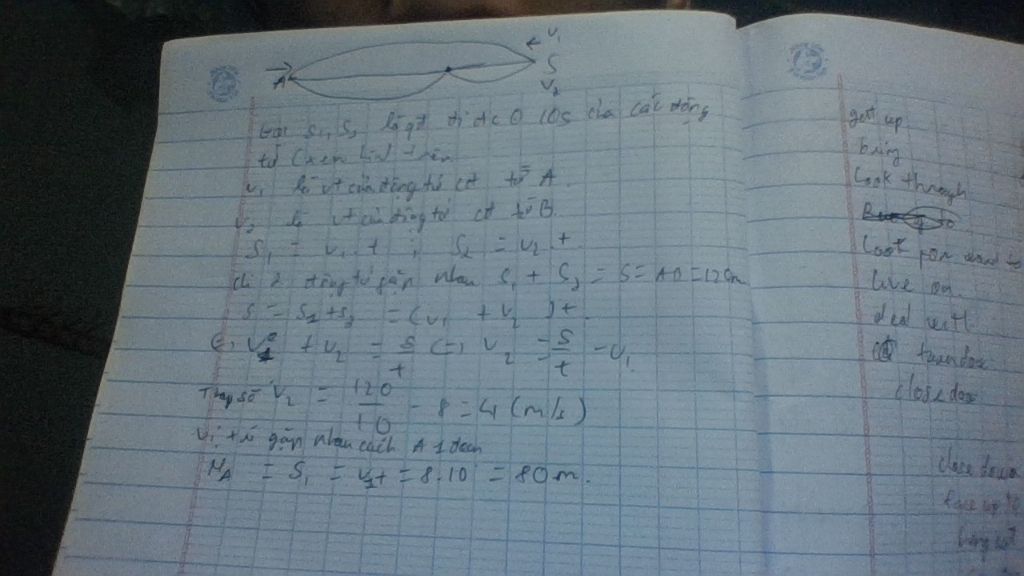 V₁
A S
V₂
Gọi S₁, S₂ là qđ đi đc 10s của các động
tử (xem hình trên
v₁ là vt của động tử cđ từ A.
v₂ là vt của động tử cđ từ B.
S₁ = v₁.t ; S₂ = v₂.t
2 động tử gặp nhau S₁ + S₂ = S = = 120m
S = S₁ + S₂ = (v₁ + v₂)t
v₁ + v₂ = S/t (=) v₂ = S/t - v₁
Thay số V₂ = 120/10 - 8 = 4 (m/s)
Vị trí gặp nhau cách A 1 đoạn
= S₁ = v₁t = 8.10 = 80m.
get up
bring
look through
look
live on
deal with
turn down
close down
close down
face up to